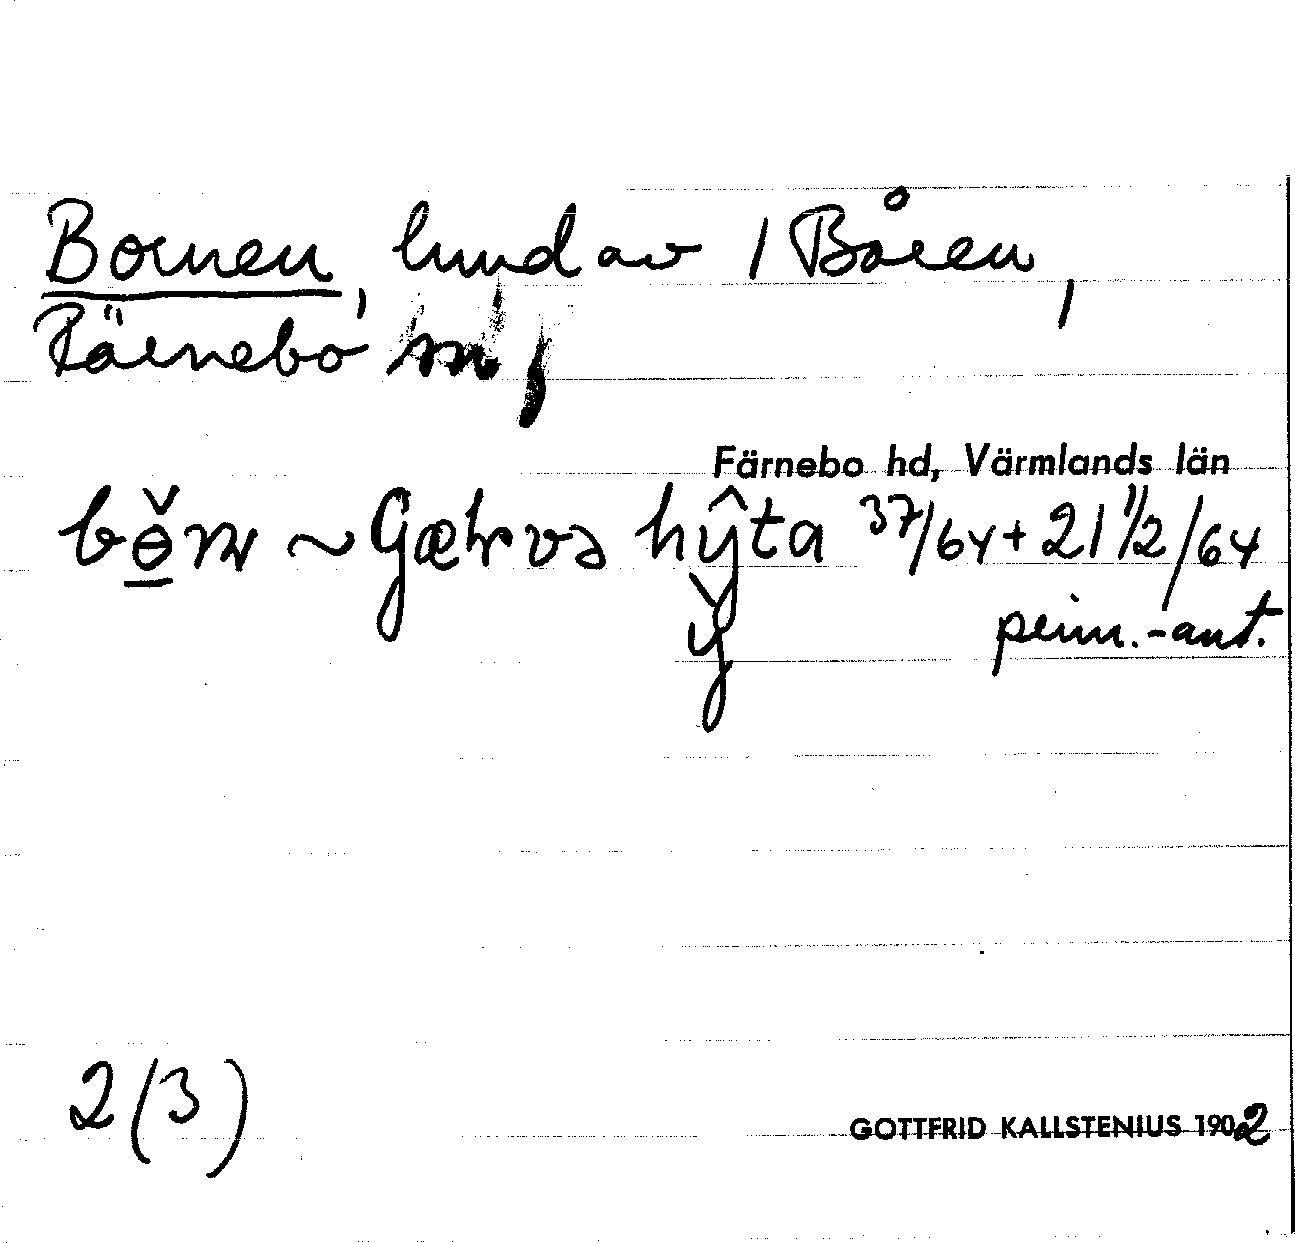 Bornen, lund av 1 Båren,
Färnebo sn,
Färnebo hd, Värmlands län
hŷta 37/64 + 21 1/2/64
ў
prim.-ant.
2(3)
GOTTFRID KALLSTENIUS 1902